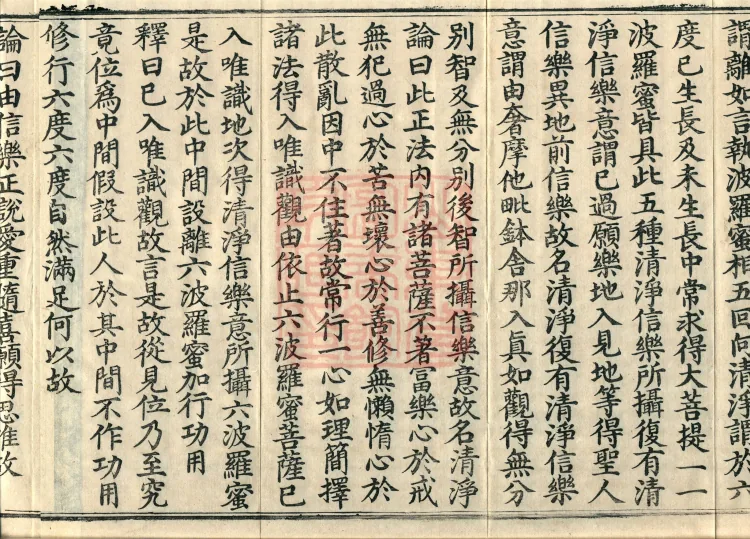 謂離如言執波羅蜜相五回向清淨謂於六
度已生長及未生長中常求得大菩提一一
波羅蜜皆具此五種清淨信樂所攝復有清
淨信樂意謂已過願樂地入見地等得聖人
信樂異地前信樂故名清淨復有清淨信樂
意謂由奢摩他毗鉢舍那入真如觀得無分
別智及無分別後智所攝信樂意故名清淨
論曰此正法內有諸菩薩不著冨樂心於戒
無犯過心於苦無壞心於善修無懶惰心於
此散亂因中不住著故常行一心如理簡擇
諸法得入唯識觀由依止六波羅蜜菩薩已
入唯識地次得清淨信樂意所攝六波羅蜜
是故於此中間設離六波羅蜜加行功用
釋曰已入唯識觀故言是故從見位乃至究
竟位爲中間假設此人於其中間不作功用
修行六度六度自然滿足何以故
論曰由信樂正說愛重隨喜願得思惟故